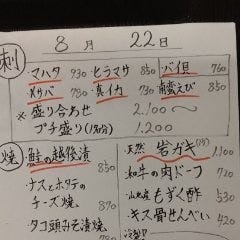 8月 22日
刺
マハタ 930 ヒラマサ 850 バイ貝 760
〆サバ 780 真イカ 南蛮えび 850
※盛り合わせ 2.100〜
プチ盛り(1名分) 1.200
焼
鮭の越後漬 850
ナスとホタテの
チーズ焼 870
タコ頭みそ漬焼
天然 岩ガキ 1.100
和牛の肉ドーフ
もずく酢 530
キス骨せんべい 420